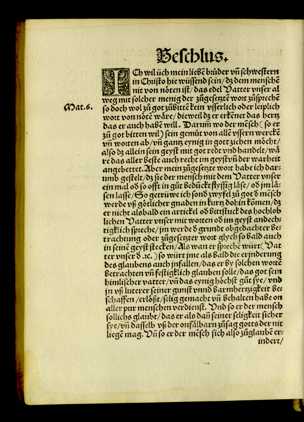 Beschlus.
ICh wil üch mein liebē brüder vn̄ schwestern
in Christo hie wüssend sein / dz dem menschē
nit von nöten ist / das edel Vatter vnser al
weg mit solcher menig der zůgesetzt wort zůsprechē
Mat.6. so doch wol zů got zůbitē kein vsserlich oder leiplich
wort von nöte wäre / die weil dz er erkēnet das hertz
das er auch haben will. Darum wo der mēsch / so er
zů got bitten wil) sein gemüt von allē vssern wercken
vn̄ worten ab / vn̄ gantz eynig in got ziehen möcht /
also dz allein sein geyst mit got redt vnd handle / wä
re das aller beste auch recht im geyst vn̄ der warheit
angebettet. Aber mein zůgesetzt wort habe ich dar=
umb gestelt / dz se der mensch mit dem Vatter vnser
ein mal od so offt in gůt bedückt flyssig lise / od im lä=
sen lasse / So getruwe ich sond zwyfel zů got d mēsch
werde vß götlicher gnaden in kurtz dohin kōmen / dz
er nicht alsbald ein artickel oð bettstuck des hochlob
lichen Vatter vnser mit worten od im geyst andech=
tigklich spreche / im werde ð grunde obgedachter be=
trachtung oder zůgesetzter wort glych so bald auch
in seinē geyst stecken / Als wan er sprechē würt / Vat
ter vnser ð ꝛc. / so würt ime als bald die erinderung
des glaubens auch infallen / das er by solchen wortē
betrachten vn̄ festigklich glauben solle / das got sein
himlischer vatter / vn̄ das eynig höchst gůt sye / vnd
in vß lutterer seiner gunst vnnd barmhertzigkeit be=
schaffen / erlößt / selig gemacht vn̄ behalten habe on
aller pur menschen verdienst. Vnd so er der mensch
sollichs glaubt / das er als dan̄ seiner seligkeit sicher
sye / vn̄ dasselb vß der onfälbarn zůsag gotts der nit
liegē mag. Vn̄ so er der mēsch sich also zůglaubē er=
indert /